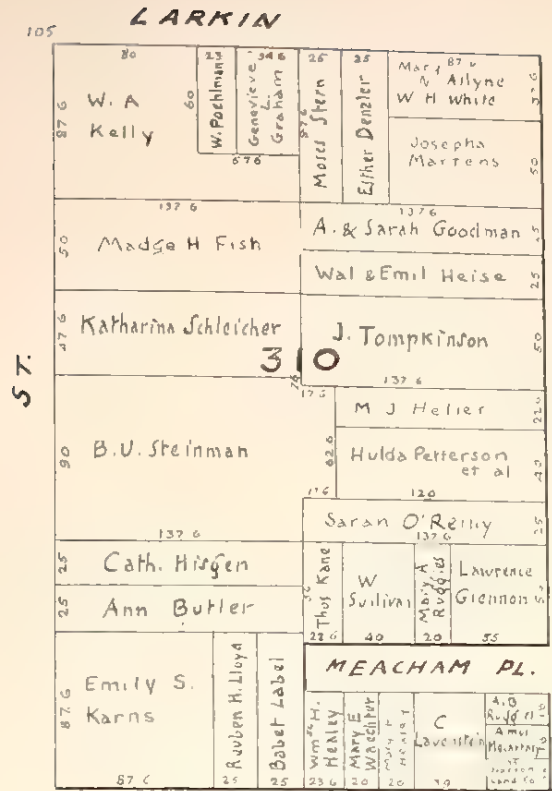 LARKIN
105
80
W. A
Kelly
87 6
60
23
W. Poehlmann
34 6
Genevieve
L.
Graham
57 6
25
Moses Stern
87 6
25
Esther Denzler
87 6
Mary
N Allyne
W H White
37 6
Josepha
Martens
137 6
Madge H Fish
50
137 6
A. & Sarah Goodman
25
Wal & Emil Heise
25
Katharina Schleicher
47 6
J. Tompkinson
50
310
ST.
137 6
17 6
M J Helier
22 6
B. U. Steinman
90
62 6
Hulda Petterson
et al
40
17 6
120
Saran O'Reilly
25
137 6
137 6
Cath. Hisgen
25
Ann Butler
25
Thos Kane
22 6
W
Sullivan
40
Mary A
Ruggles
20
Lawrence
Glennon
55
MEACHAM PL.
Emily S.
Karns
87 6
87 6
Reuben H. Lloyd
25
Babet Label
25
Wm H.
Healey
23 6
Mary E
Waechter
20
Mary F
Healey
20
C
Lavenstein
39
A. B
Ruggles
Land Co